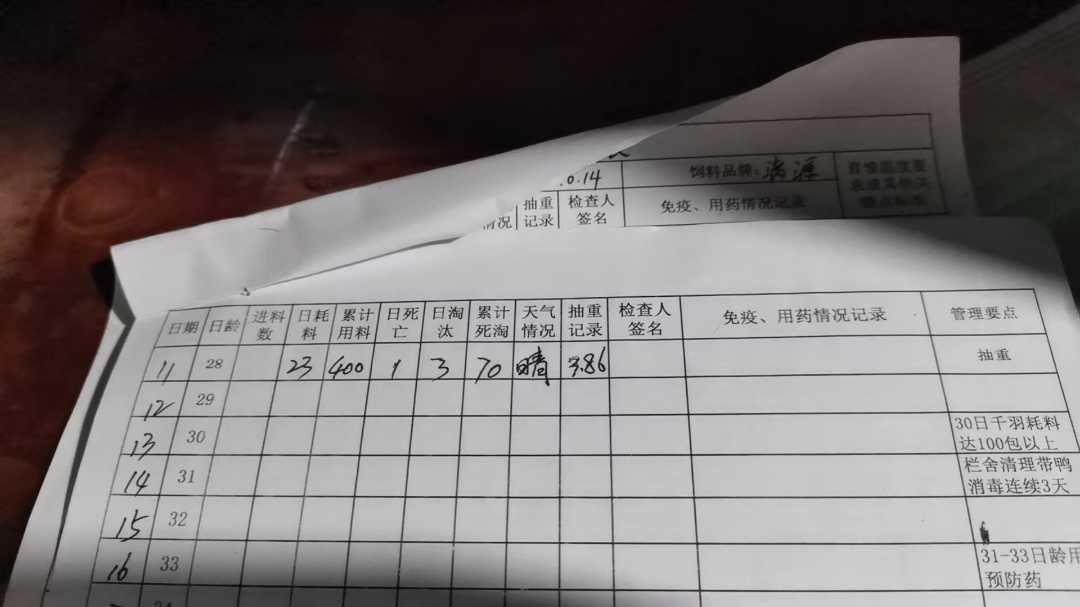 .0.14 饲料品牌:
情况 抽重记录 检查人签名 免疫、用药情况记录
日期 日龄 进料数 日耗料 累计用料 日死亡 日淘汰 累计死淘 天气情况 抽重记录 检查人签名 免疫、用药情况记录 管理要点
11 28 23 400 1 3 70 晴 3.86 抽重
12 29
13 30 30日千羽耗料达100包以上
14 31 栏舍清理带鸭消毒连续3天
15 32
16 33 31-33日龄用预防药